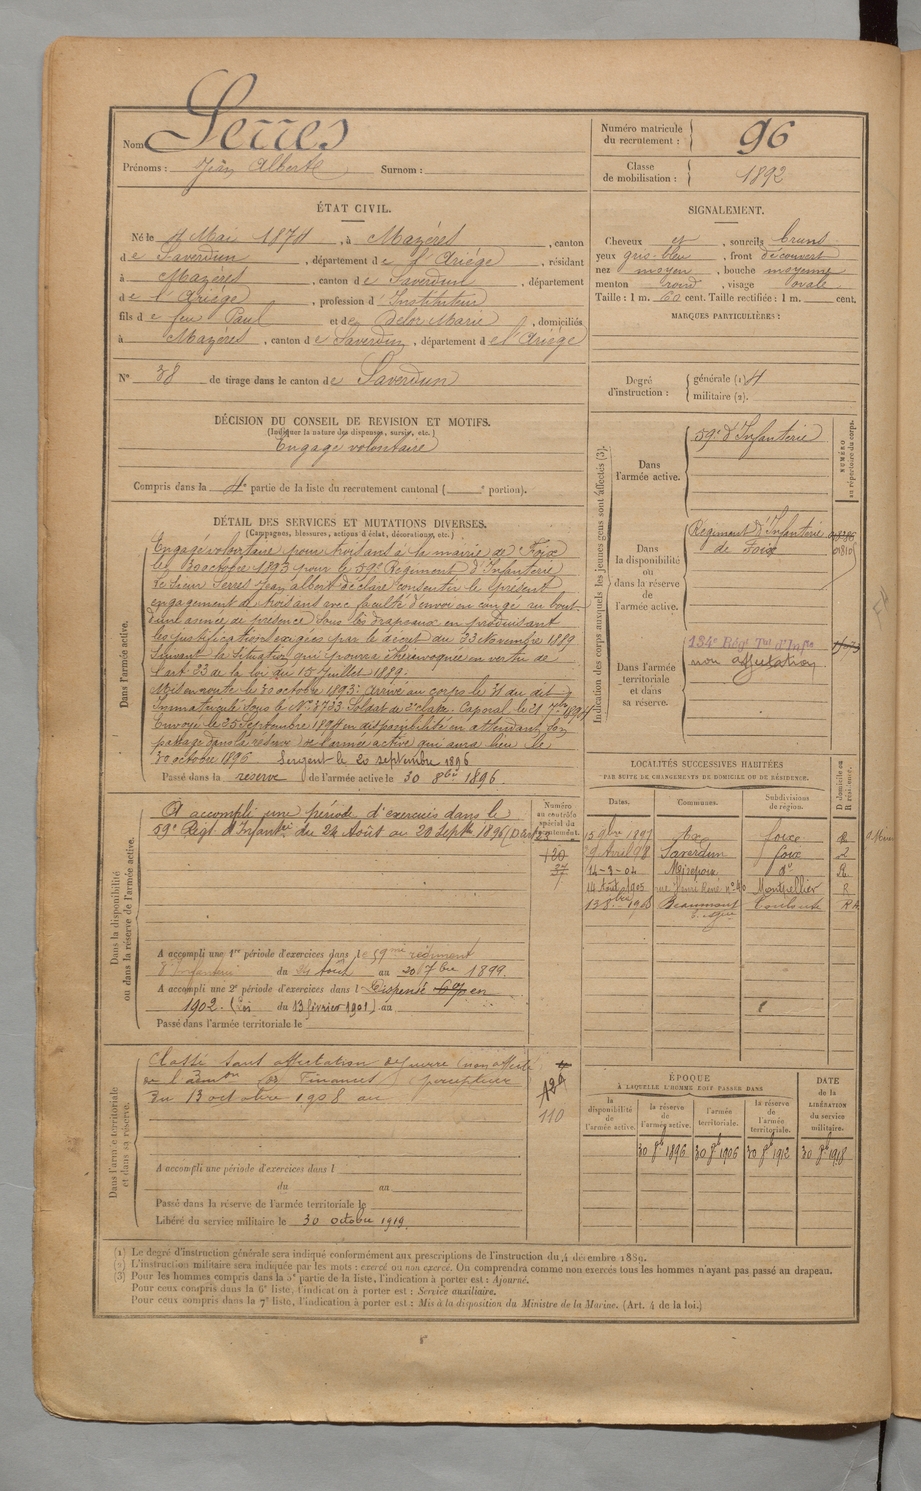 Nom Serres
Prénoms : Jean Albert Surnom :
Numéro matricule du recrutement : 96
Classe de mobilisation : 1892
ÉTAT CIVIL.
Né le 4 Mai 1874, à Mazères, canton
de Saverdun, département de l'Ariége, résidant
à Mazères, canton de Saverdun, département
de l'Ariége, profession d'Instituteur
fils de feu Paul et de Delor Marie, domiciliés
à Mazères, canton de Saverdun, département de l'Ariége
N° 38 de tirage dans le canton de Saverdun
SIGNALEMENT.
Cheveux et, sourcils bruns
yeux gris-bleu, front découvert
nez moyen, bouche moyenne
menton rond, visage ovale
Taille : 1 m. 60 cent. Taille rectifiée : 1 m. cent.
MARQUES PARTICULIÈRES :
Degré d'instruction : générale (1) 4
militaire (2).
DÉCISION DU CONSEIL DE REVISION ET MOTIFS.
(Indiquer la nature des dispenses, sursis, etc.)
Engagé volontaire
Compris dans la 4e partie de la liste du recrutement cantonal ( e portion).
DÉTAIL DES SERVICES ET MUTATIONS DIVERSES.
(Campagnes, blessures, actions d'éclat, décorations, etc.)
Dans l'armée active.
Engagé volontaire pour trois ans à la mairie de Foix
le 30 octobre 1893 pour le 59e Régiment d'Infanterie
Le Sieur Serres Jean albert déclare consentir le présent
engagement de trois ans avec faculté d'envoi en congé au bout
d'une année de presence sous les drapeaux en produisant
les justifications exigées par le décret du 23 Novembre 1889
Suivant la situation qui pourra être invoquée en vertu de
l'art. 23 de la loi du 15 Juillet 1889.
Mis en route le 30 octobre 1893. Arrivé au corps le 31 du dit
Immatriculé sous le N° 3733. Soldat de 2e classe. Caporal le 21 7bre 1894
Envoyé le 25 Septembre 1894 en disponibilité en attendant son
passage dans la réserve de l'armée active qui aura lieu le
30 octobre 1896. Sergent le 20 septembre 1896
Passé dans la réserve de l'armée active le 30 8bre 1896.
Indication des corps auxquels les jeunes gens sont affectés (3).
NUMÉRO au répertoire du corps.
Dans l'armée active. 59e d'Infanterie
Dans la disponibilité ou dans la réserve de l'armée active. Régiment d'Infanterie
de Foix
Dans l'armée territoriale et dans sa réserve. 134e Régt Tal d'Infie
non affectation
Dans la disponibilité ou dans la réserve de l'armée active.
A accompli une période d'exercices dans le
59e Régt d'Infanterie du 24 Août au 20 Septbre 1896
Numéro au contrôle spécial du recrutement.
120
37
A accompli une 1re période d'exercices dans le 59me régiment
d'Infanterie du 24 Août au 20 7bre 1899.
A accompli une 2e période d'exercices dans l Dispensé en
1902. (Loi du 13 février 1901) au
Passé dans l'armée territoriale le
LOCALITÉS SUCCESSIVES HABITÉES
PAR SUITE DE CHANGEMENTS DE DOMICILE OU DE RÉSIDENCE.
Dates. Communes. Subdivisions de région. D domicile ou R résidence.
15 9bre 1897 Ax foix R
9 Avril 98 Saverdun foix
14-3-04 Mirepoix do R
14 Août 1905 Montpellier R
Beaumont Toulouse R
Dans l'armée territoriale et dans sa réserve.
Classé sans affectation de guerre (non affecté
Finances percepteur
Du 13 octobre 1908 au
110
A accompli une période d'exercices dans l
du au
Passé dans la réserve de l'armée territoriale le
Libéré du service militaire le 30 octobre 1919.
ÉPOQUE
À LAQUELLE L'HOMME DOIT PASSER DANS
la disponibilité de l'armée active. la réserve de l'armée active. l'armée territoriale. la réserve de l'armée territoriale. DATE de la LIBÉRATION du service militaire.
30 8bre 1896 30 8bre 1906 30 8bre 1912 30 8bre 1918
(1) Le degré d'instruction générale sera indiqué conformément aux prescriptions de l'instruction du 4 décembre 1889.
(2) L'instruction militaire sera indiquée par les mots : exercé ou non exercé. On comprendra comme non exercés tous les hommes n'ayant pas passé au drapeau.
(3) Pour les hommes compris dans la 5e partie de la liste, l'indication à porter est : Ajourné.
Pour ceux compris dans la 6e liste, l'indication à porter est : Service auxiliaire.
Pour ceux compris dans la 7e liste, l'indication à porter est : Mis à la disposition du Ministre de la Marine. (Art. 4 de la loi.)